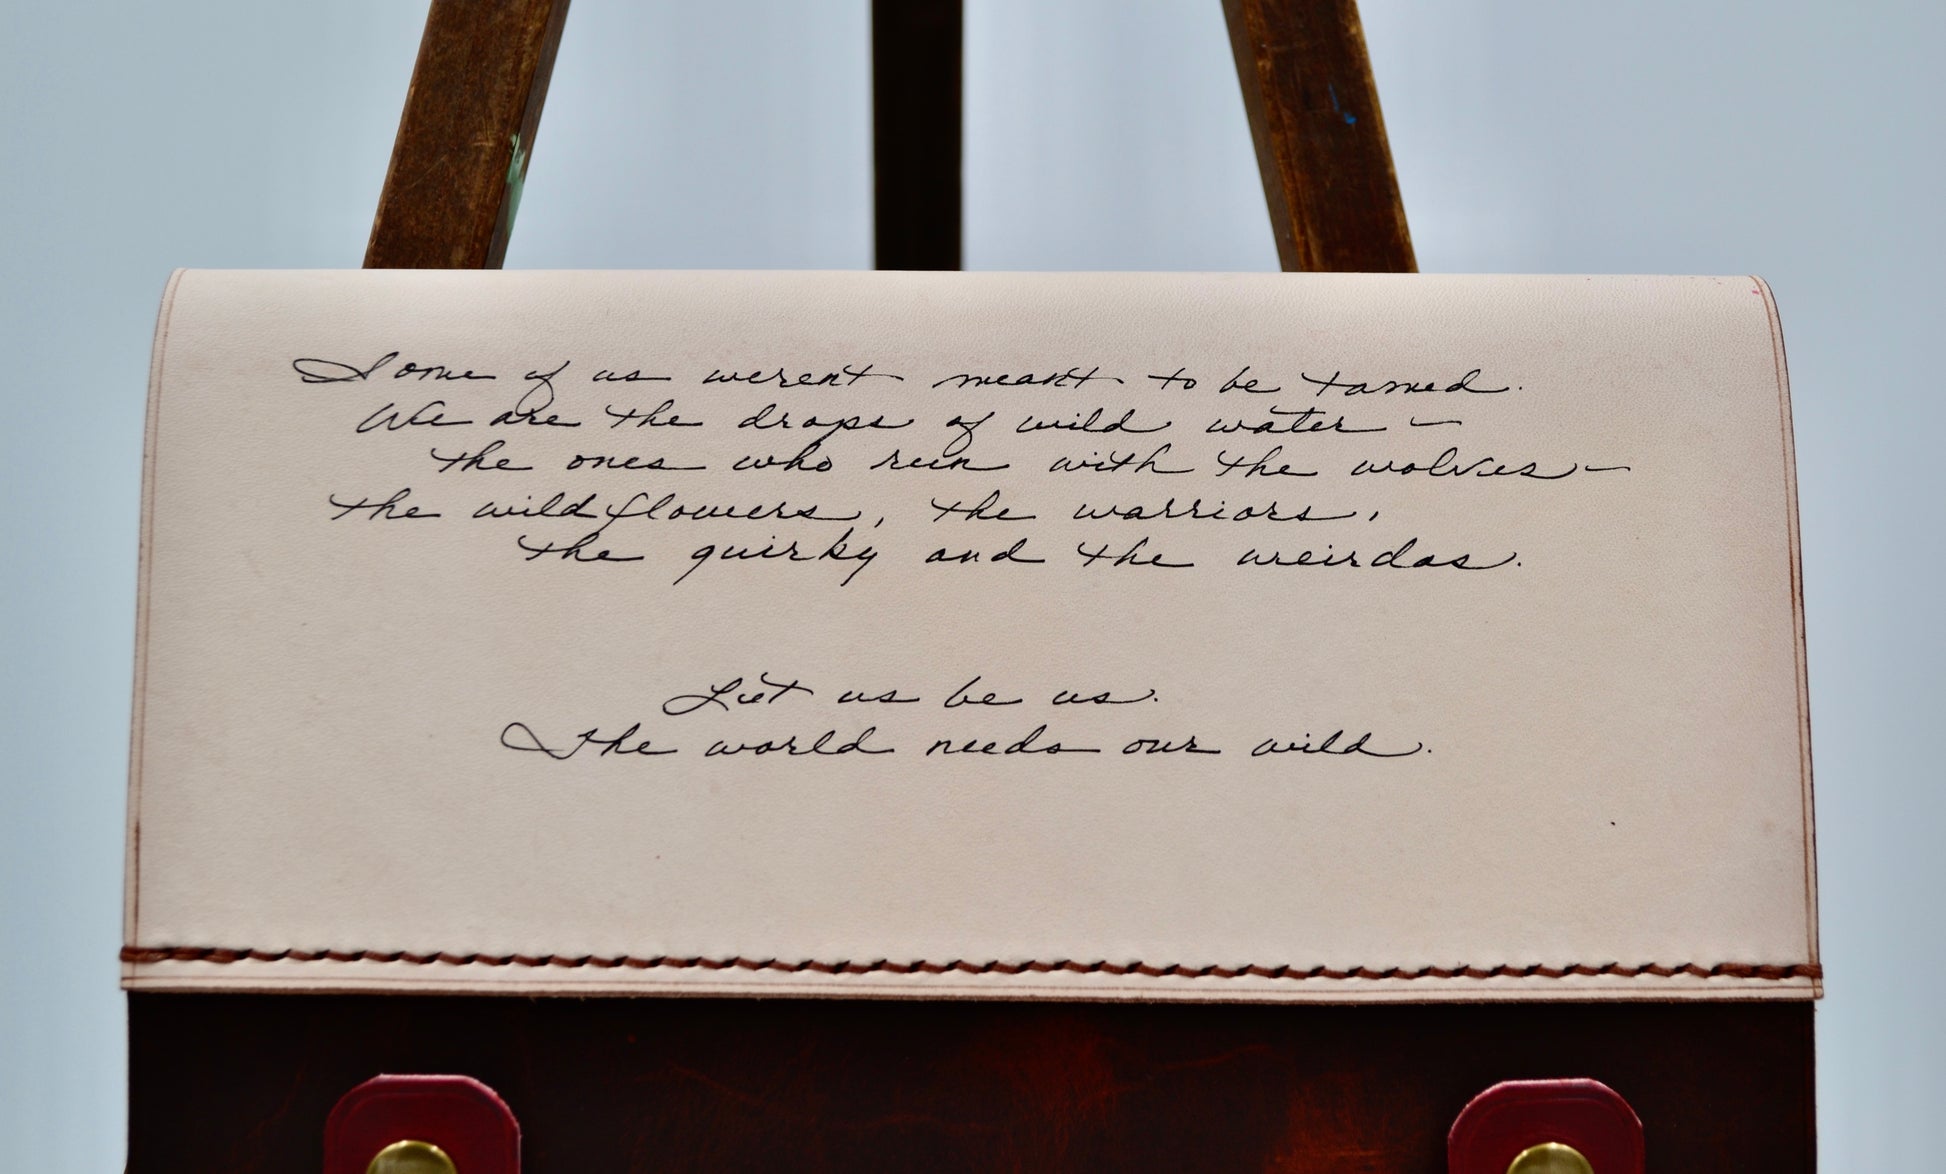 Some of us weren't meant to be tamed.
We are the drops of wild water –
the ones who run with the wolves –
the wildflowers, the warriors,
the quirky and the weirdos.
Let us be us.
The world needs our wild.